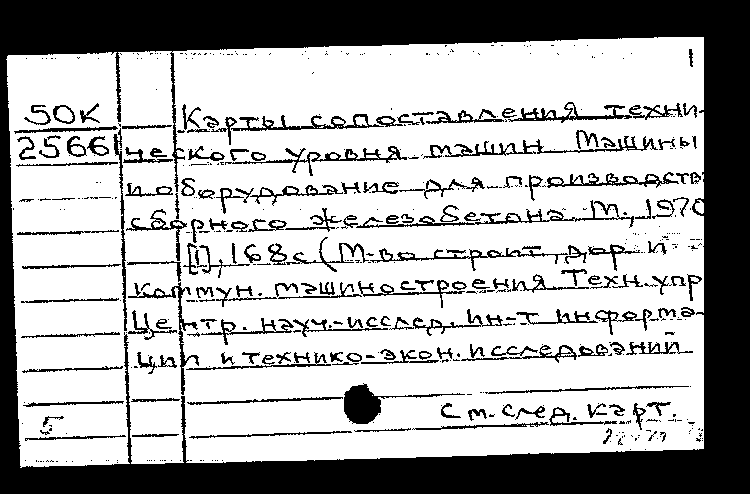 1
50К
25661
Карты сопоставления техни-
ческого уровня машин Машины
и оборудование для производств
сборного железобетона М., 1970
[1], 168с (М-во строит, дор и
коммун. машиностроения Техн. упр
Центр. науч.-исслед. ин-т информа-
ции и технико-экон. исследований
См. след. карт.
5